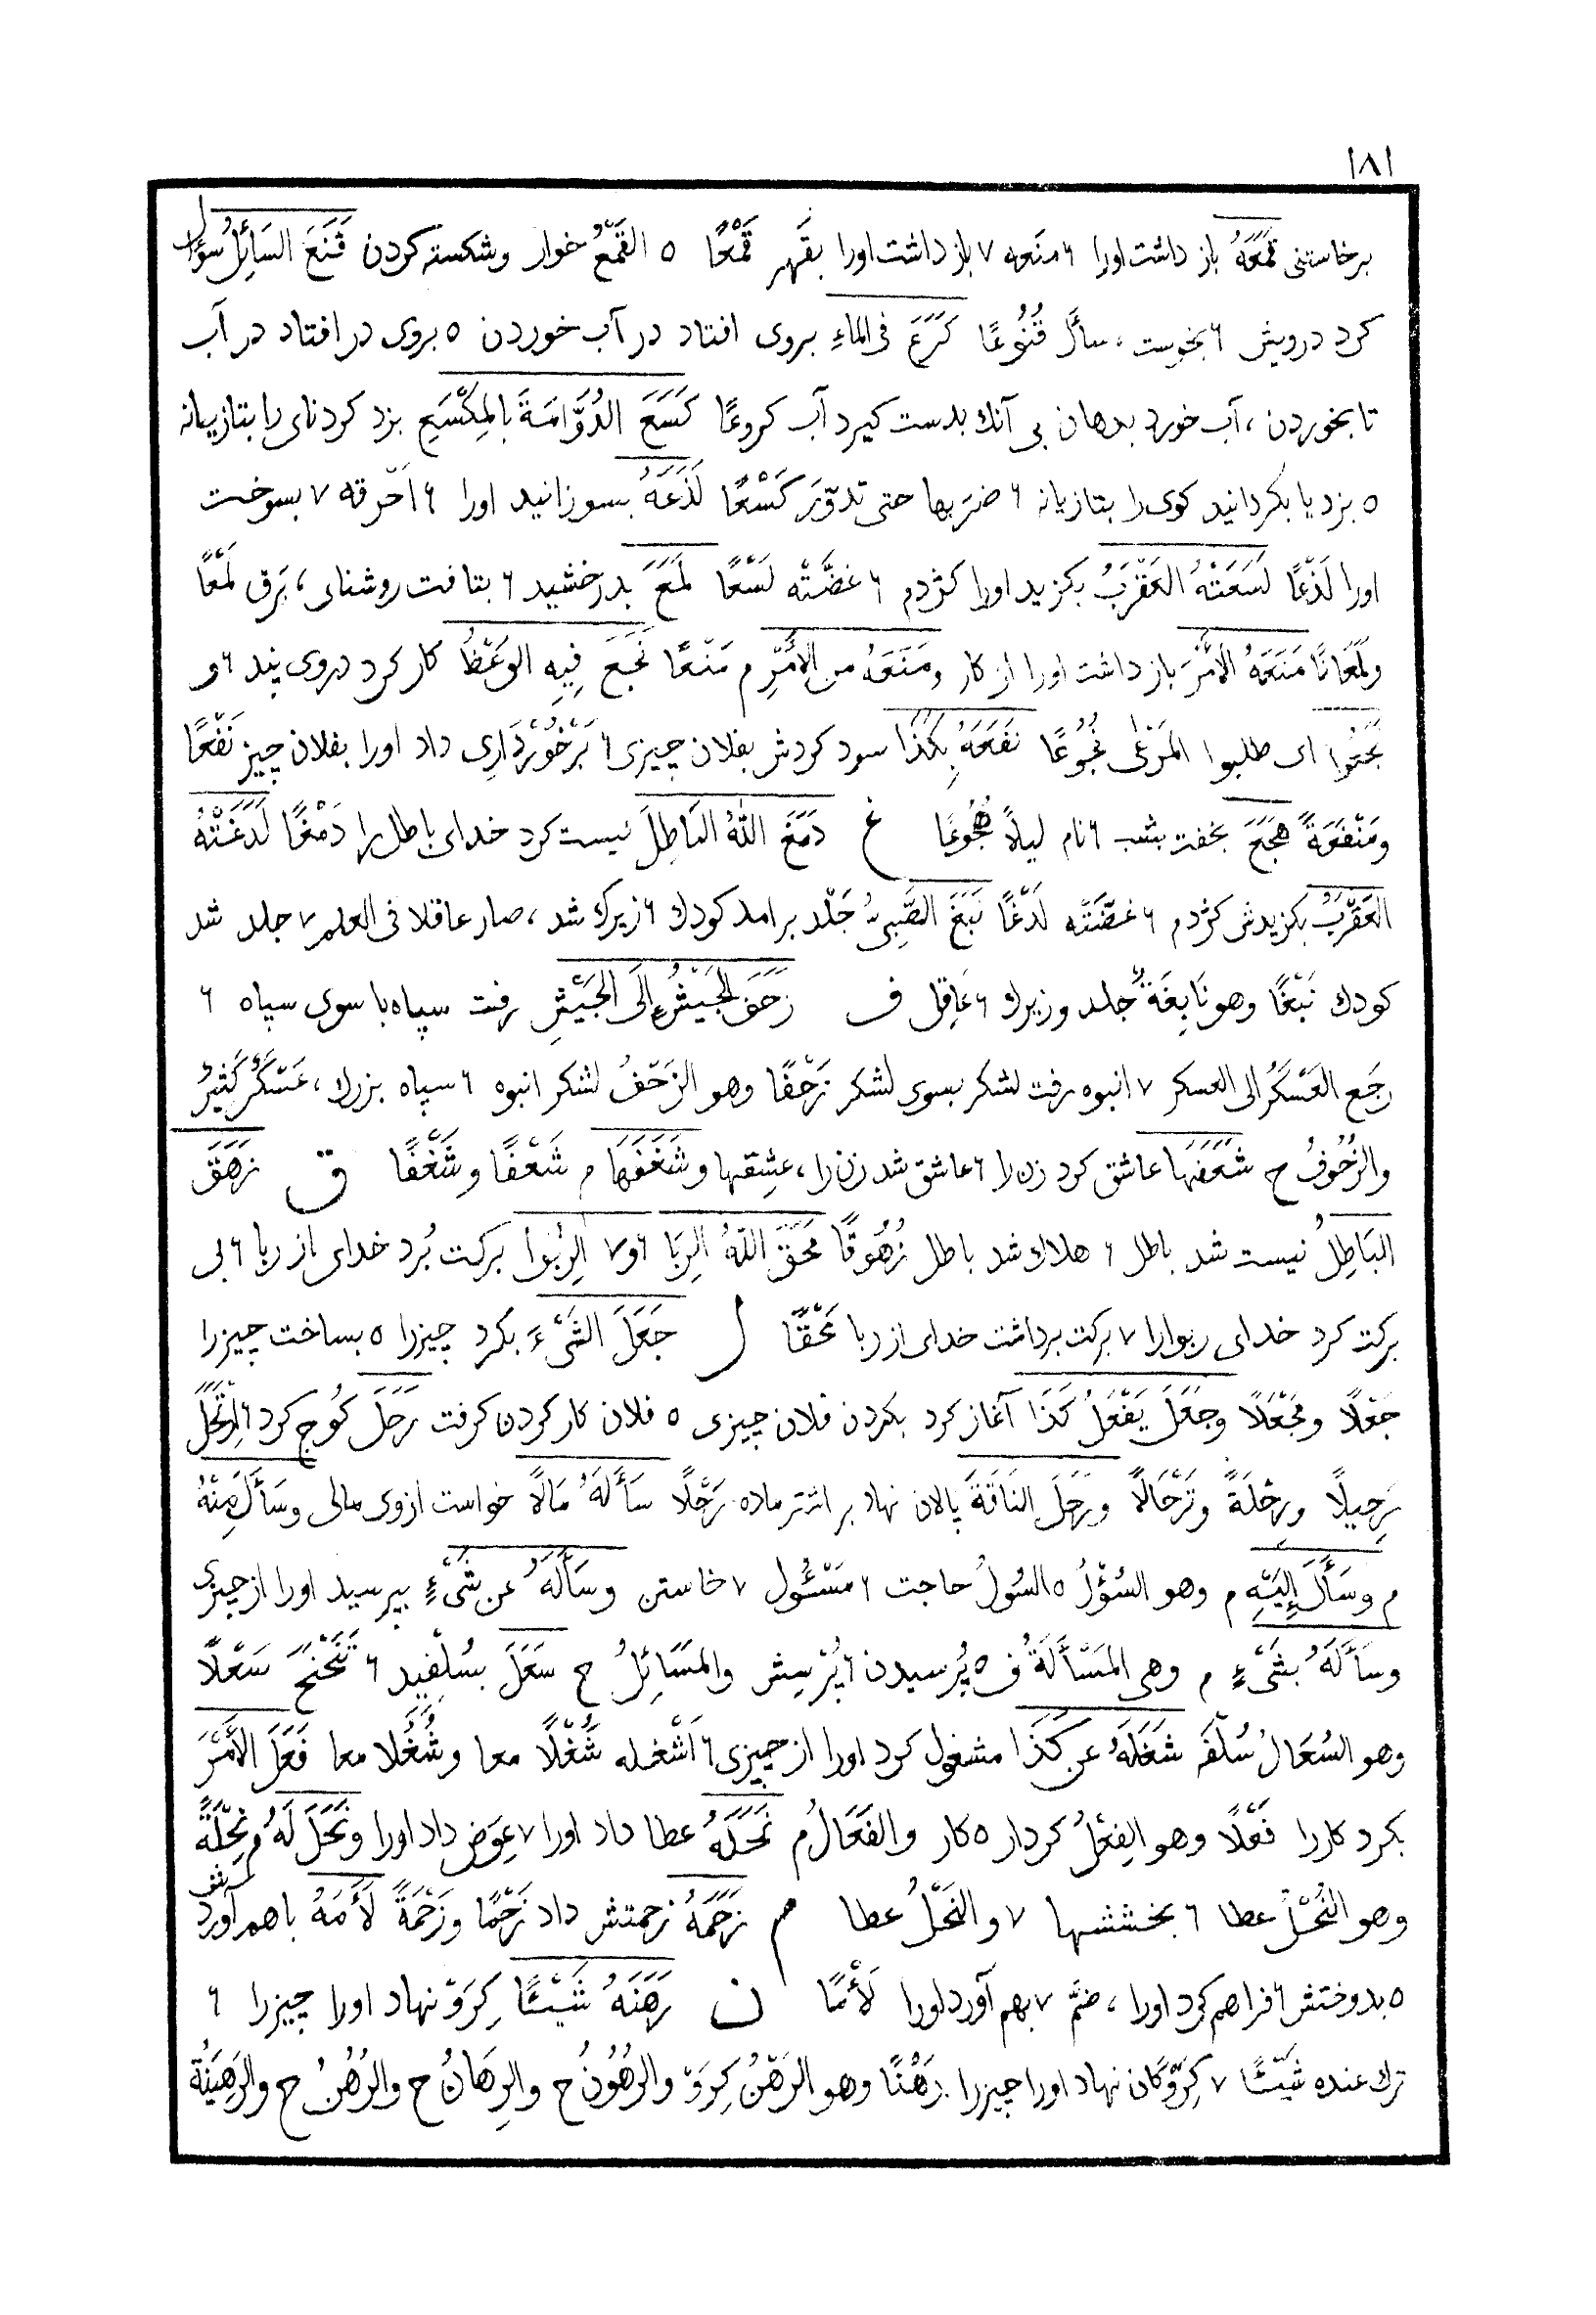 ١٨١
برخاستنی قَمَعَهُ باز داشت اورا ٦ منَعه ٧ باز داشت اورا بقَهر قَمْعًا ٥ القَمْعُ خوار وشکسته کردن قَنَعَ السَائِلُ سؤال
کرد درویش ٦ بخوست ، سأل قُنُوعًا کَرَعَ فی الماءِ بروی افتاد در آب خوردن ٥ بروی در افتاد در آب
تا بخوردن ، آب خورد بدهان بی آنك بدست کیرد آب کروعًا کَسَعَ الدُوَّامَةَ بالمِکْسَعِ بزد کردنای را بتازیانه
٥ بزد یا بکردانید کوی را بتازیانه ٦ ضرَبها حتی تدوّرَ کَسْعًا لَذَعَهُ بسوزانید اورا ٦ اَحرقه ٧ بسوخت
اورا لَذْعًا لَسَعَتْهُ العَقْرَبُ بکزید اورا کژدم ٦ غضَّتْه لَسْعًا لَمَعَ بدرخشید ٦ بتافت روشنای ، بَرق لَمْعًا
ولَمَعَانًا مَنَعَهُ الأَمْرَ باز داشت اورا از کار ومَنَعَهُ من الأَمْرِ م مَنْعًا نَجَعَ فِیهِ الوَعْظُ کار کرد دروی پند ٦ و
نَجَعُوا ای طلبوا المَرْعٰی نُجُوعًا نَفَعَهُ بِکَذَا سود کردش بفلان چیزی ٦ بَرْخُوْرْدَارِی داد اورا بفلان چیز نَفْعًا
ومَنْفَعَةً هَجَعَ بخفت بشب ٦ نام لیلاً هُجُوعًا غ دَمَغَ اللهُ البَاطِلَ نیست کرد خدای باطل را دَمْغًا لَدَغَتْهُ
العَقْرَبُ بکزیدش کژدم ٦ غضّتْه لَدْغًا نَبَغَ الصَّبِیُّ جَلْد برامد کودك ٦ زیرك شد ، صار عاقلا فی العلم ٧ جلد شد
کودك نَبْغًا وهو نَابِغَةٌ جلد وزیرك ٦ عَاقِل ف زَحَفَ الجَیْشُ إلَی الجَیْشِ رفت سپاه با سوی سپاه ٦
رجَع العَسْکَرُ الی العسکر ٧ انبوه رفت لشکر بسوی لشکر زَحْفًا وهو الزَحْفُ لشکر انبوه ٦ سپاه بزرك ، عَسْکَرٌ کَثِیرٌ
والزُحُوفُ ح شَعَفَهَا عاشق کرد زن را ٦ عاشق شد زن را ، عِشقها وشَغَفَهَا م شَعْفًا وشَغْفًا ق زهَقَ
البَاطِلُ نیست شد باطل ٦ هلاك شد باطل زُهُوقًا مَحَقَ اللهُ الرِبَا ٦ و٧ الرِبُوا برکت بُرد خدای از ربا ٦ بی
برکت کرد خدای ربوارا ٧ برکت برداشت خدای از ربا مَحْقًا ل جَعَلَ الشَیْءَ بکرد چیزرا ٥ بساخت چیزرا
جَعْلًا ومَجْعَلًا وجَعَلَ یَفْعَلُ کَذَا آغاز کرد بکردن فلان چیزی ٥ فلان کار کردن کرفت رحَلَ کُوچ کرد ٦ اِرتَحَلَ
رَحِیلًا ورِحْلَةً وتَرْحَالًا ورحَلَ النَاقَةَ پالان نهاد بر اشتر ماده رَحْلًا سَأَلَهُ مَالًا خواست ازوی مالی وسَأَلَ مِنْهُ
م وسَأَلَ إِلَیْهِ م وهو السُؤْلُ ٥ السُولُ حاجت ٦ مَسْئُول ٧ خاستن وسَأَلَهُ عن شَیْءٍ بپرسید اورا از چیزی
وسَأَلَهُ بِشَیْءٍ م وهی المَسْأَلَةُ ف ٥ پُرسیدن ٦ پُرْسِش والمَسَائِلُ ح سَعَلَ بسُلْفِید ٦ تَنَحْنَحَ سَعْلًا
وهو السُعَالُ سُلْفَه شَغَلَهُ عن کَذَا مشغول کرد اورا از چیزی ٦ اَشْغله شُغْلًا معا وشُغُلا معا فَعَلَ الأَمْرَ
بکرد کاررا فَعْلًا وهو الفِعْلُ کردار ٥ کار والفَعَالُ م نَحَلَهُ عطا داد اورا ٧ عِوَض داد اورا ونَحَلَ لَهُ م نِحْلَةً
وهو النُحْلُ عطا ٦ بخششها ٧ والنَحْلُ عطا م زَحَمَهُ زحمتش داد زَحْمًا وزَحْمَةً لَأَمَهُ باهم آوردش
٥ بدوختش ٦ فراهم کرد اورا ، ضَمَّ ٧ بهم آورد اورا لَأْمًا ن رَهَنَهُ شَیْئًا کِرَوْ نهاد اورا چیزرا ٦
ترك عنده شَیْئًا ٧ کِرَوْکَان نهاد اورا چیزرا رَهْنًا وهو الرَهْنُ کِرَوْ والرُهُونُ ح والرِهَانُ ح والرُهُنُ ح والرَهِیَنةُ